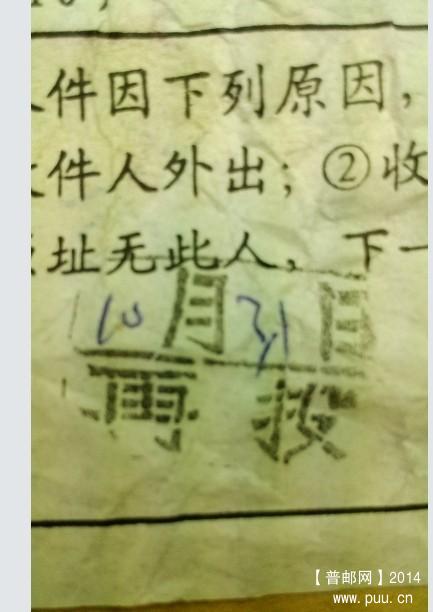 件因下列原因，
件人外出；②收
址无此人，下一
10月31日
再投
【普邮网】2014
www.puu.cn